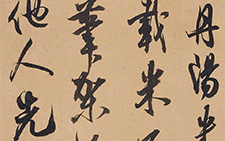 丹陽米
載米
筆架
他人先